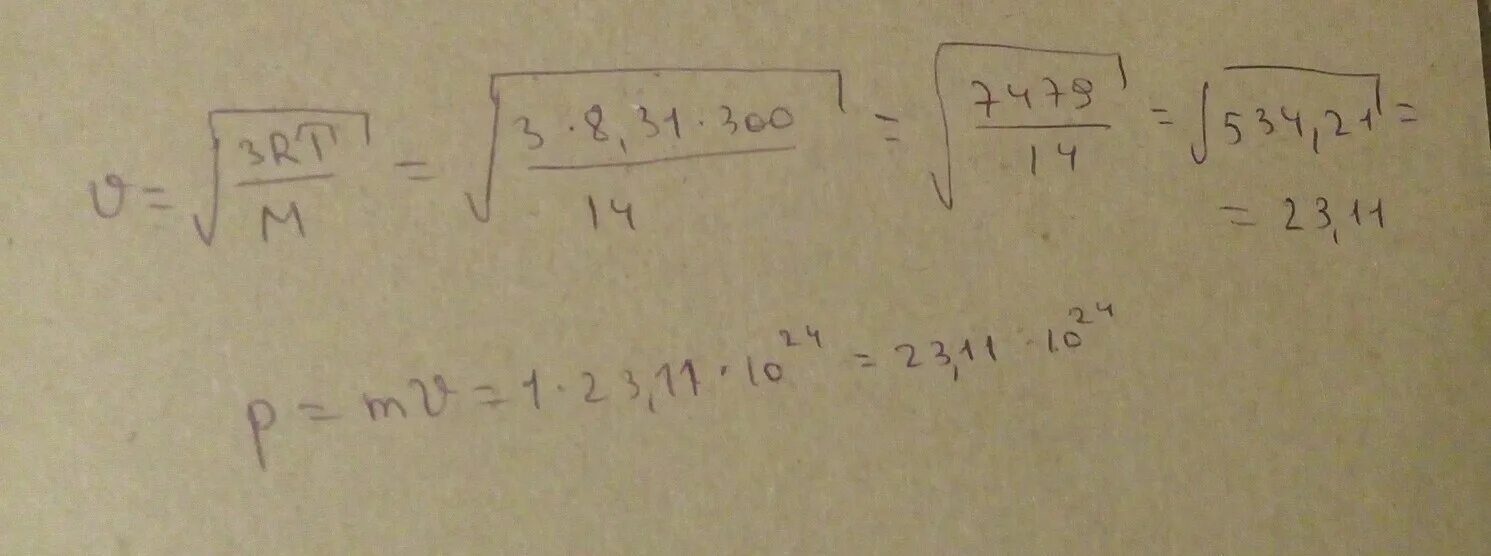 υ = √(3RT/M) = √(3·8,31·300/14) = √(7479/14) = √534,21 =
= 23,11
p = mυ = 1·23,11·10²⁴ = 23,11·10²⁴